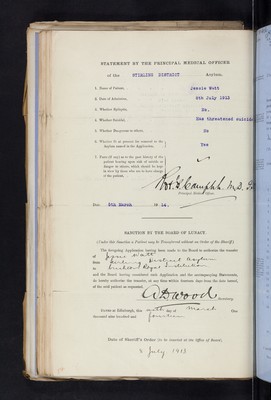 STATEMENT BY THE PRINCIPAL MEDICAL OFFICER
of the STIRLING DISTRICT Asylum.
1. Name of Patient, Jessie Watt
2. Date of Admission, 8th July 1913
3. Whether Epileptic, No.
4. Whether Suicidal, Has threatened suicide
5. Whether Dangerous to others, No
6. Whether fit at present for removal to the Asylum named in the Application, Yes
7. Facts (if any) as to the past history of the
patient bearing upon risk of suicide or
danger to others, which should be kept
in view by those who are to have charge
of the patient.
Robt. B. Campbell M.D.
Principal Medical Officer.
Date 5th March 1914.
SANCTION BY THE BOARD OF LUNACY.
(Under this Sanction a Patient may be Transferred without an Order of the Sheriff.)
The foregoing Application having been made to the Board to authorise the transfer
of Jessie Watt
from Stirling District Asylum
to Royal Institution
and the Board having considered said Application and the accompanying Statements,
do hereby authorise the transfer, at any time within fourteen days from the date hereof,
of the said patient as requested.
A D Wood Secretary.
GIVEN at Edinburgh, this day of March One
thousand nine hundred and fourteen
Date of Sheriff's Order (to be inserted at the Office of Board).
8 July 1913